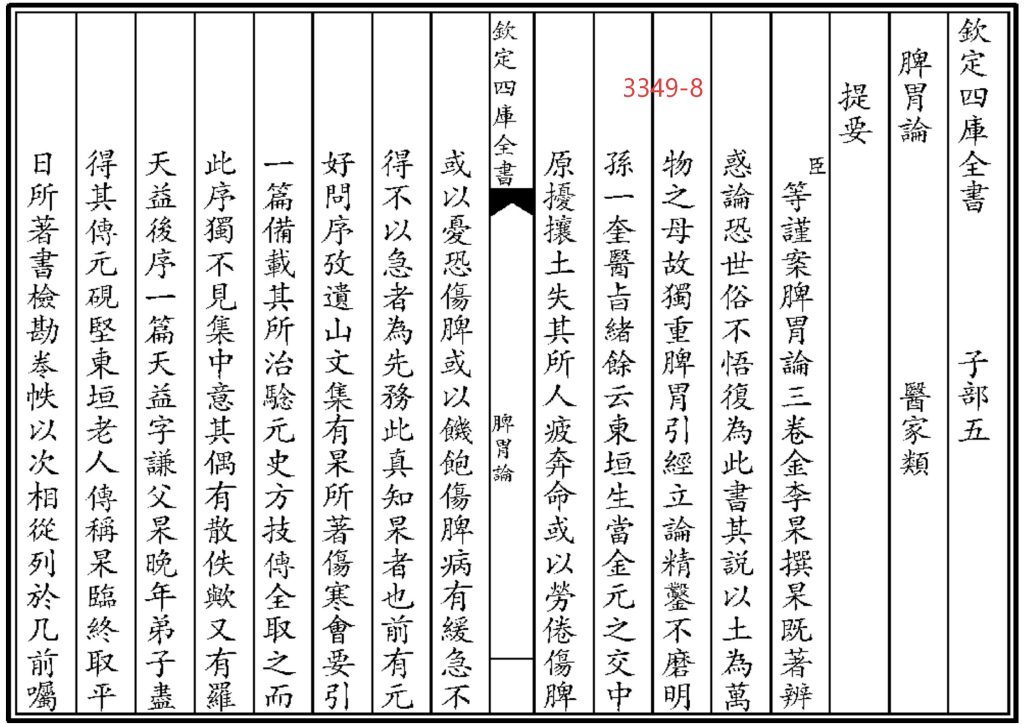 欽定四庫全書 子部五
脾胃論 醫家類
提要
臣等謹案脾胃論三卷金李杲撰杲既著辨
惑論恐世俗不悟復為此書其説以土為萬
物之母故獨重脾胃引經立論精鑿不磨明
3349-8
孫一奎醫旨緒餘云東垣生當金元之交中
原擾攘土失其所人疲奔命或以勞倦傷脾
欽定四庫全書 脾胃論
或以憂恐傷脾或以饑飽傷脾病有緩急不
得不以急者為先務此真知杲者也前有元
好問序攷遺山文集有杲所著傷寒會要引
一篇備載其所治驗元史方技傳全取之而
此序獨不見集中意其偶有散佚歟又有羅
天益後序一篇天益字謙父杲晚年弟子盡
得其傳元硯堅東垣老人傳稱杲臨終取平
日所著書檢勘卷帙以次相從列於几前囑